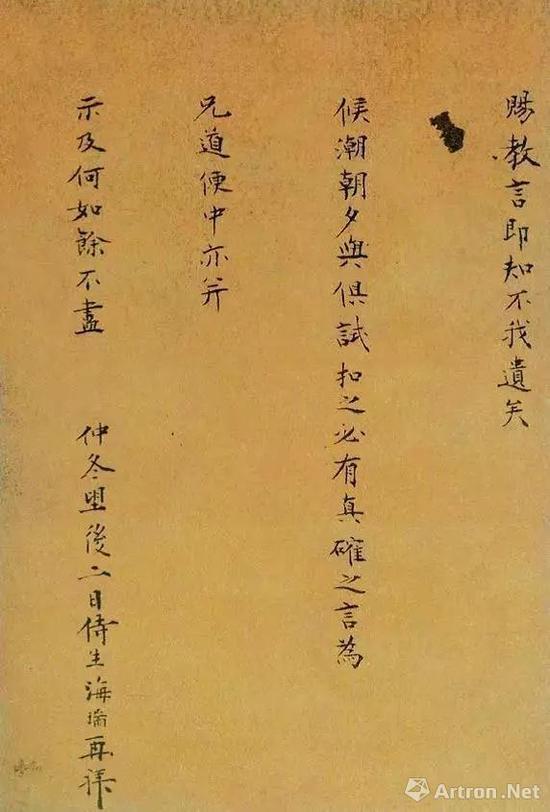 賜教言即知不我遺矣
候潮朝夕與俱試扣之必有真確之言為
兄道便中亦并
示及何如餘不盡 仲冬望後二日侍生海瑞再拜
Artron.Net